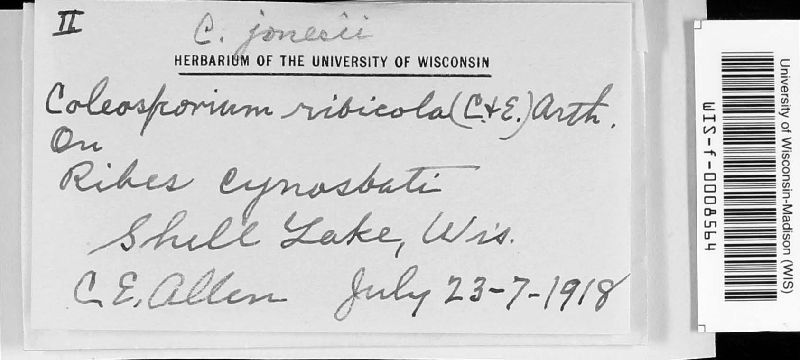 II
C. jonesii
HERBARIUM OF THE UNIVERSITY OF WISCONSIN
Coleosporium ribicola (C. & E.) Arth.
On
Ribes cynosbati
Shell Lake, Wis.
C. E. Allen July 23-7-1918
University of Wisconsin-Madison (WIS)
WIS-f-0008564